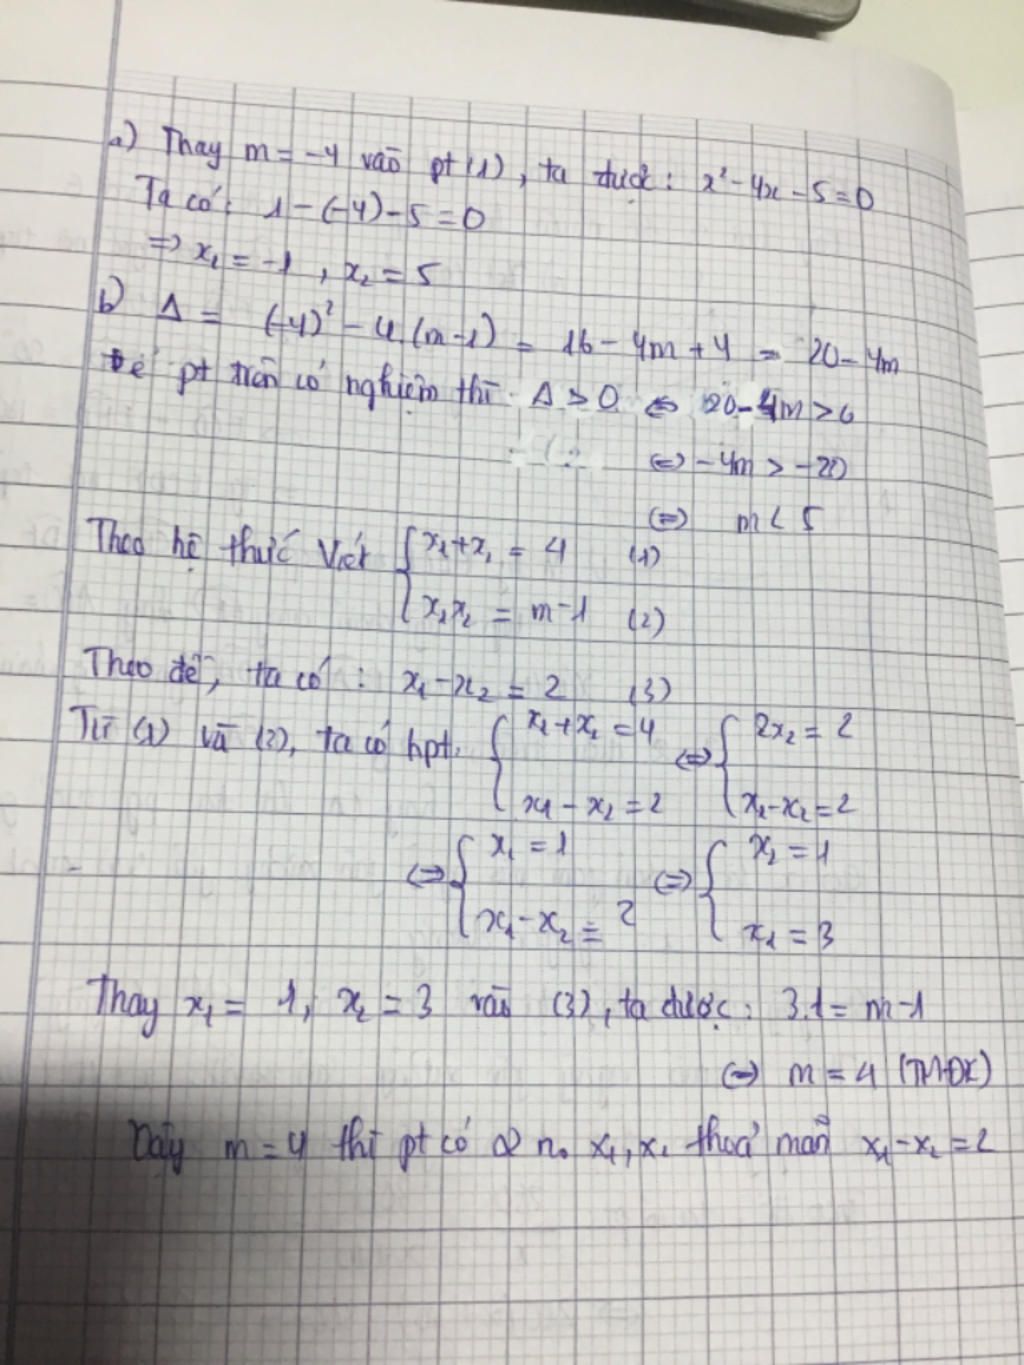 a) Thay m = -4 vào pt (1), ta được: x² - 4x - 5 = 0
Ta có: 1 - (-4) - 5 = 0
=> x₁ = -1, x₂ = 5
b) Δ = (-4)² - 4.(m-1) = 16 - 4m + 4 = 20 - 4m
Để pt trên có nghiệm thì Δ > 0 <=> 20 - 4m > 0
<=> -4m > -20
<=> m < 5
Theo hệ thức Viét { x₁ + x₂ = 4 (1)
x₁x₂ = m - 1 (2)
Theo đề, ta có: x₁ - x₂ = 2 (3)
Từ (1) và (2), ta có hpt. { x₁ + x₂ = 4 <=> { 2x₂ = 2
x₁ - x₂ = 2 x₁ - x₂ = 2
<=> { x₁ = 1 <=> { x₂ = 1
x₁ - x₂ = 2 x₁ = 3
Thay x₁ = 1, x₂ = 3 vào (3), ta được: 3.1 = m - 1
<=> m = 4 (TMĐK)
Vậy m = 4 thì pt có 2 n₀ x₁, x₂ thoả mãn x₁ - x₂ = 2